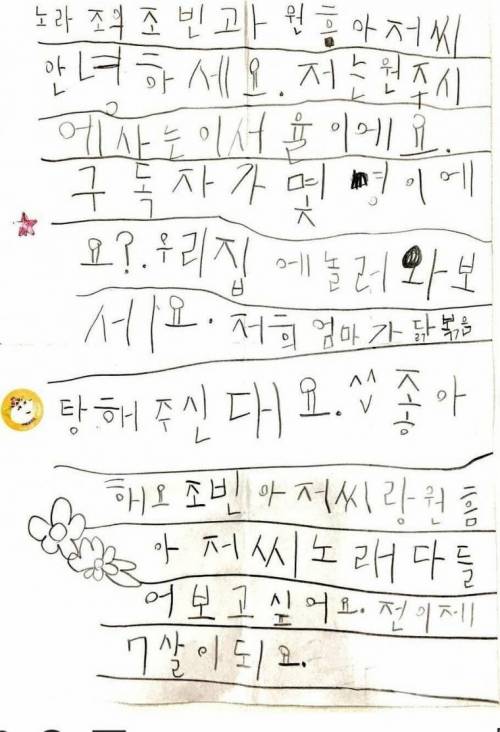 노라 조의 조빈고아 원흠 아저씨
안녕 하세요. 저는 원주시
에 사는 이서율이에요.
구독자가 몇 명이에
요?. 우리집에 놀러 와 보
세요. 저희 엄마가 닭볶음
탕 해 주신대요. ^^ 좋아
해요 조빈 아저씨랑 원흠
아저씨 노래 다 들
어 보고 싶어요. 전 이제
7살이 되요.